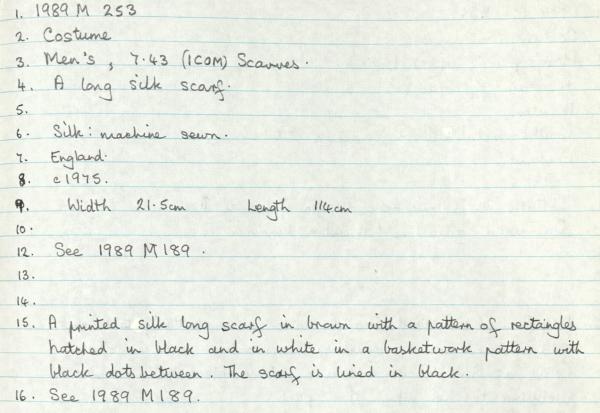 1. 1989 M 253
2. Costume
3. Men's, 7.43 (ICOM) Scarves.
4. A long silk scarf.
5.
6. Silk: machine sewn.
7. England.
8. c1975.
9. Width 21.5cm Length 114cm
10.
12. See 1989 M 189.
13.
14.
15. A printed silk long scarf in brown with a pattern of rectangles
hatched in black and in white in a basketwork pattern with
black dots between. The scarf is lined in black.
16. See 1989 M 189.